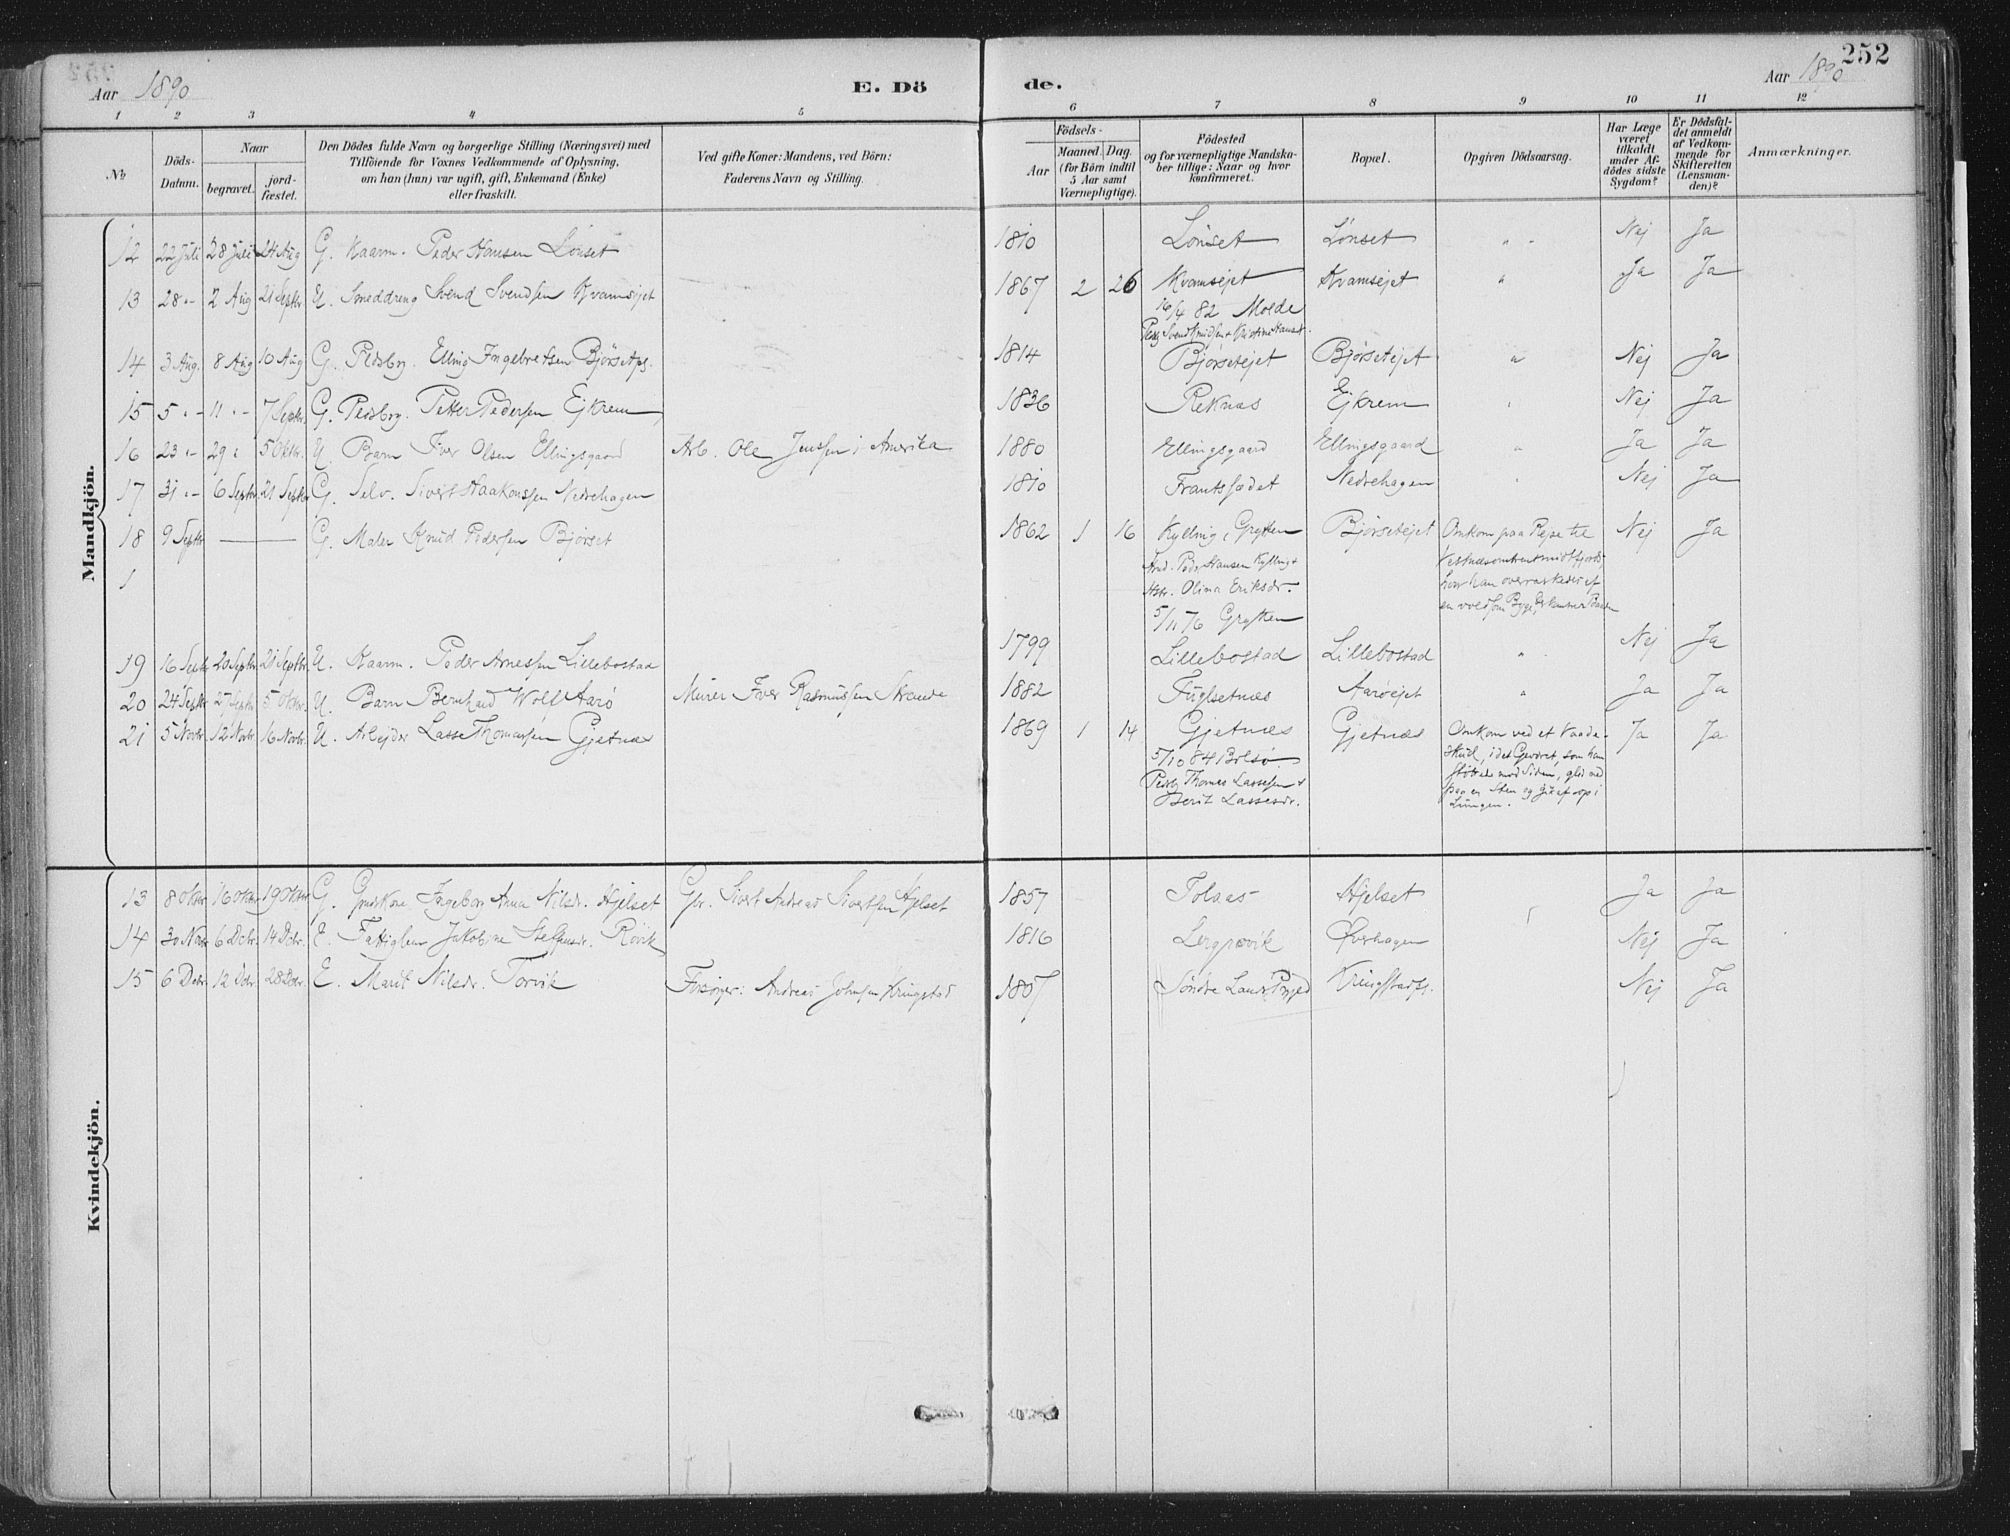 252
Aar 1890 E. Dö de. Aar 1890
1 2 3 4 5 6 7 8 9 10 11 12
No
Döds-Datum.
Naar
begravet.
jord-fæstet.
Den Dödes fulde Navn og borgerlige Stilling (Næringsvei) med
Tilföiende for Voxnes Vedkommende af Oplysning,
om han (hun) var ugift, gift, Enkemand (Enke)
eller fraskilt.
Ved gifte Koner: Mandens, ved Börn:
Faderens Navn og Stilling.
Födsels-
Aar
Maaned. Dag.
(for Börn indtil
5 Aar samt
Værnepligtige).
Födested
og for værnepligtige Mandska-
ber tillige: Naar og hvor
konfirmeret.
Bopæl.
Opgiven Dödsaarsag.
Har Læge
været
tilkaldt
under Af-
dödes sidste
Sygdom?
Er Dödsfal-
det anmeldt
af Vedkom-
mende for
Skifteretten
(Lensman-
den)?
Anmærkninger.
Mandkjön.
12 22 Juli 28 Juli 24 Aug G. Kaarm. Peder Hansen Lönset 1810 Lönset Lönset " " Nej Ja
13 28 "- 2 Aug 21 Septbr U. Smeddreng Svend Svendsen Kvamsejet 1867 2 26 Kvamsejet Kvamsejet " Ja Ja
16/4 82 Molde
14 3 Aug. 8 Aug 10 Aug G. Pldsbrg. Elling Ingebretsen Bjørsetpl. 1814 Bjørsetejet Bjørsetejet " Nej Ja
15 5 "- 11 "- 7 Septbr G. Pldsbrg. Petter Pedersen Ejkrem 1836 Reknæs Ejkrem " Nej Ja
16 23 "- 29 " 5 Oktbr. U. Barn Iver Olsen Ellingsgaard Arb. Ole Jenssen i Amerika 1880 Ellingsgaard Ellingsgaard " Ja Ja
17 31 "- 6 Septbr 21 Septbr G. Selv. Sivert Haakonssen Nedrehagen 1810 Frantssædet Nedrehagen " Nej Ja
18 9 Septbr — G. Maler Knud Pedersen Bjørset 1862 1 16 Kylling, Grytten Bjørsetejet Omkom paa Rejse til Nej Ja
Peder Hansen Kylling +
hvor han overraskedes af
Olina Eriksdr.
5/11 76 Grytten
1
19 16 Septbr 20 Septbr 21 Septbr U. Kaarm. Peder Arnessen Lillebostad 1799 Lillebostad Lillebostad " Nej Ja
20 24 Septbr 27 Septbr 5 Oktbr. U. Barn Bernhard Wolf Aarö Murer Iver Rasmussen Strande 1882 Fuglsetnæs Aaröejet " Ja Ja
21 5 Novbr 12 Novbr 16 Novbr. U. Arbejder Lasse Thomassen Gjetnæs 1869 1 14 Gjetnæs Gjetnæs Omkom ved et Vaade- Ja Ja
skud, idet Geværet, som han
5/10 84 Bolsö
støttede mod Siden, gled ned
Pldsbrg Thomas Lassesen +
paa en Sten og gik af op i
Berit Lassesdr.
Lungen.
Kvindekjön.
13 8 Oktbr 16 Oktbr 19 Oktbr G. Grdskone Ingeborg Anna Nilsdr. Hjelset Gbr. Sivert Andreas Sivertsen Hjelset 1857 Tolaas Hjelset " Ja Ja
14 30 Novbr 6 Dcbr. 14 Dcbr. E. Fattiglem Jakobine Steffensdr. Røvik 1816 Øverhagen Nej Ja
15 6 Dcbr. 12 Dcbr. 28 Dcbr. E. Marit Nilsdr. Torvik Forsörger: Andreas Johnsen Kringstad 1807 Söndre Land Prgjeld Kringstadpl. Nej Ja